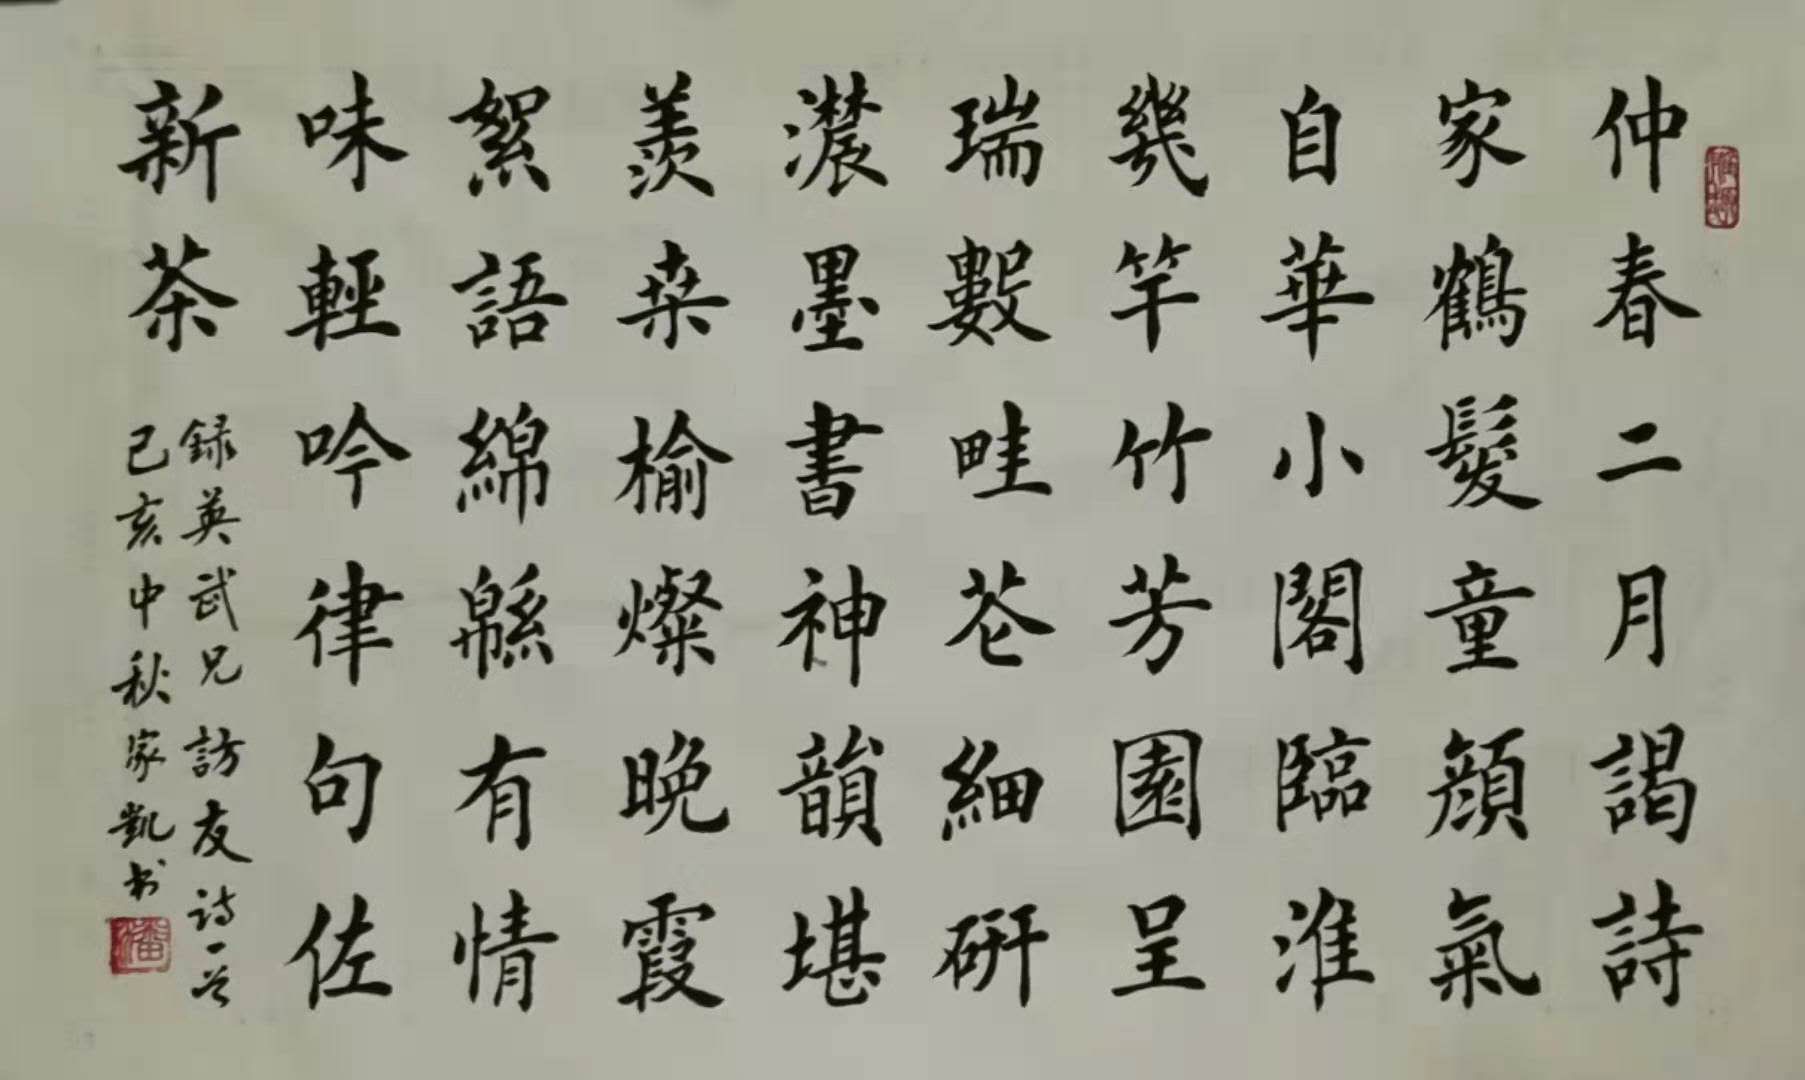 仲春二月謁詩
家鶴髮童顔氣
自華小閣臨淮
幾竿竹芳園呈
瑞數畦苍細研
濃墨書神韻堪
羨桒榆燦晚霞
絮語綿緜有情
味輕吟律句佐
新茶
録英武兄訪友诗一首
己亥中秋家凱书
潘